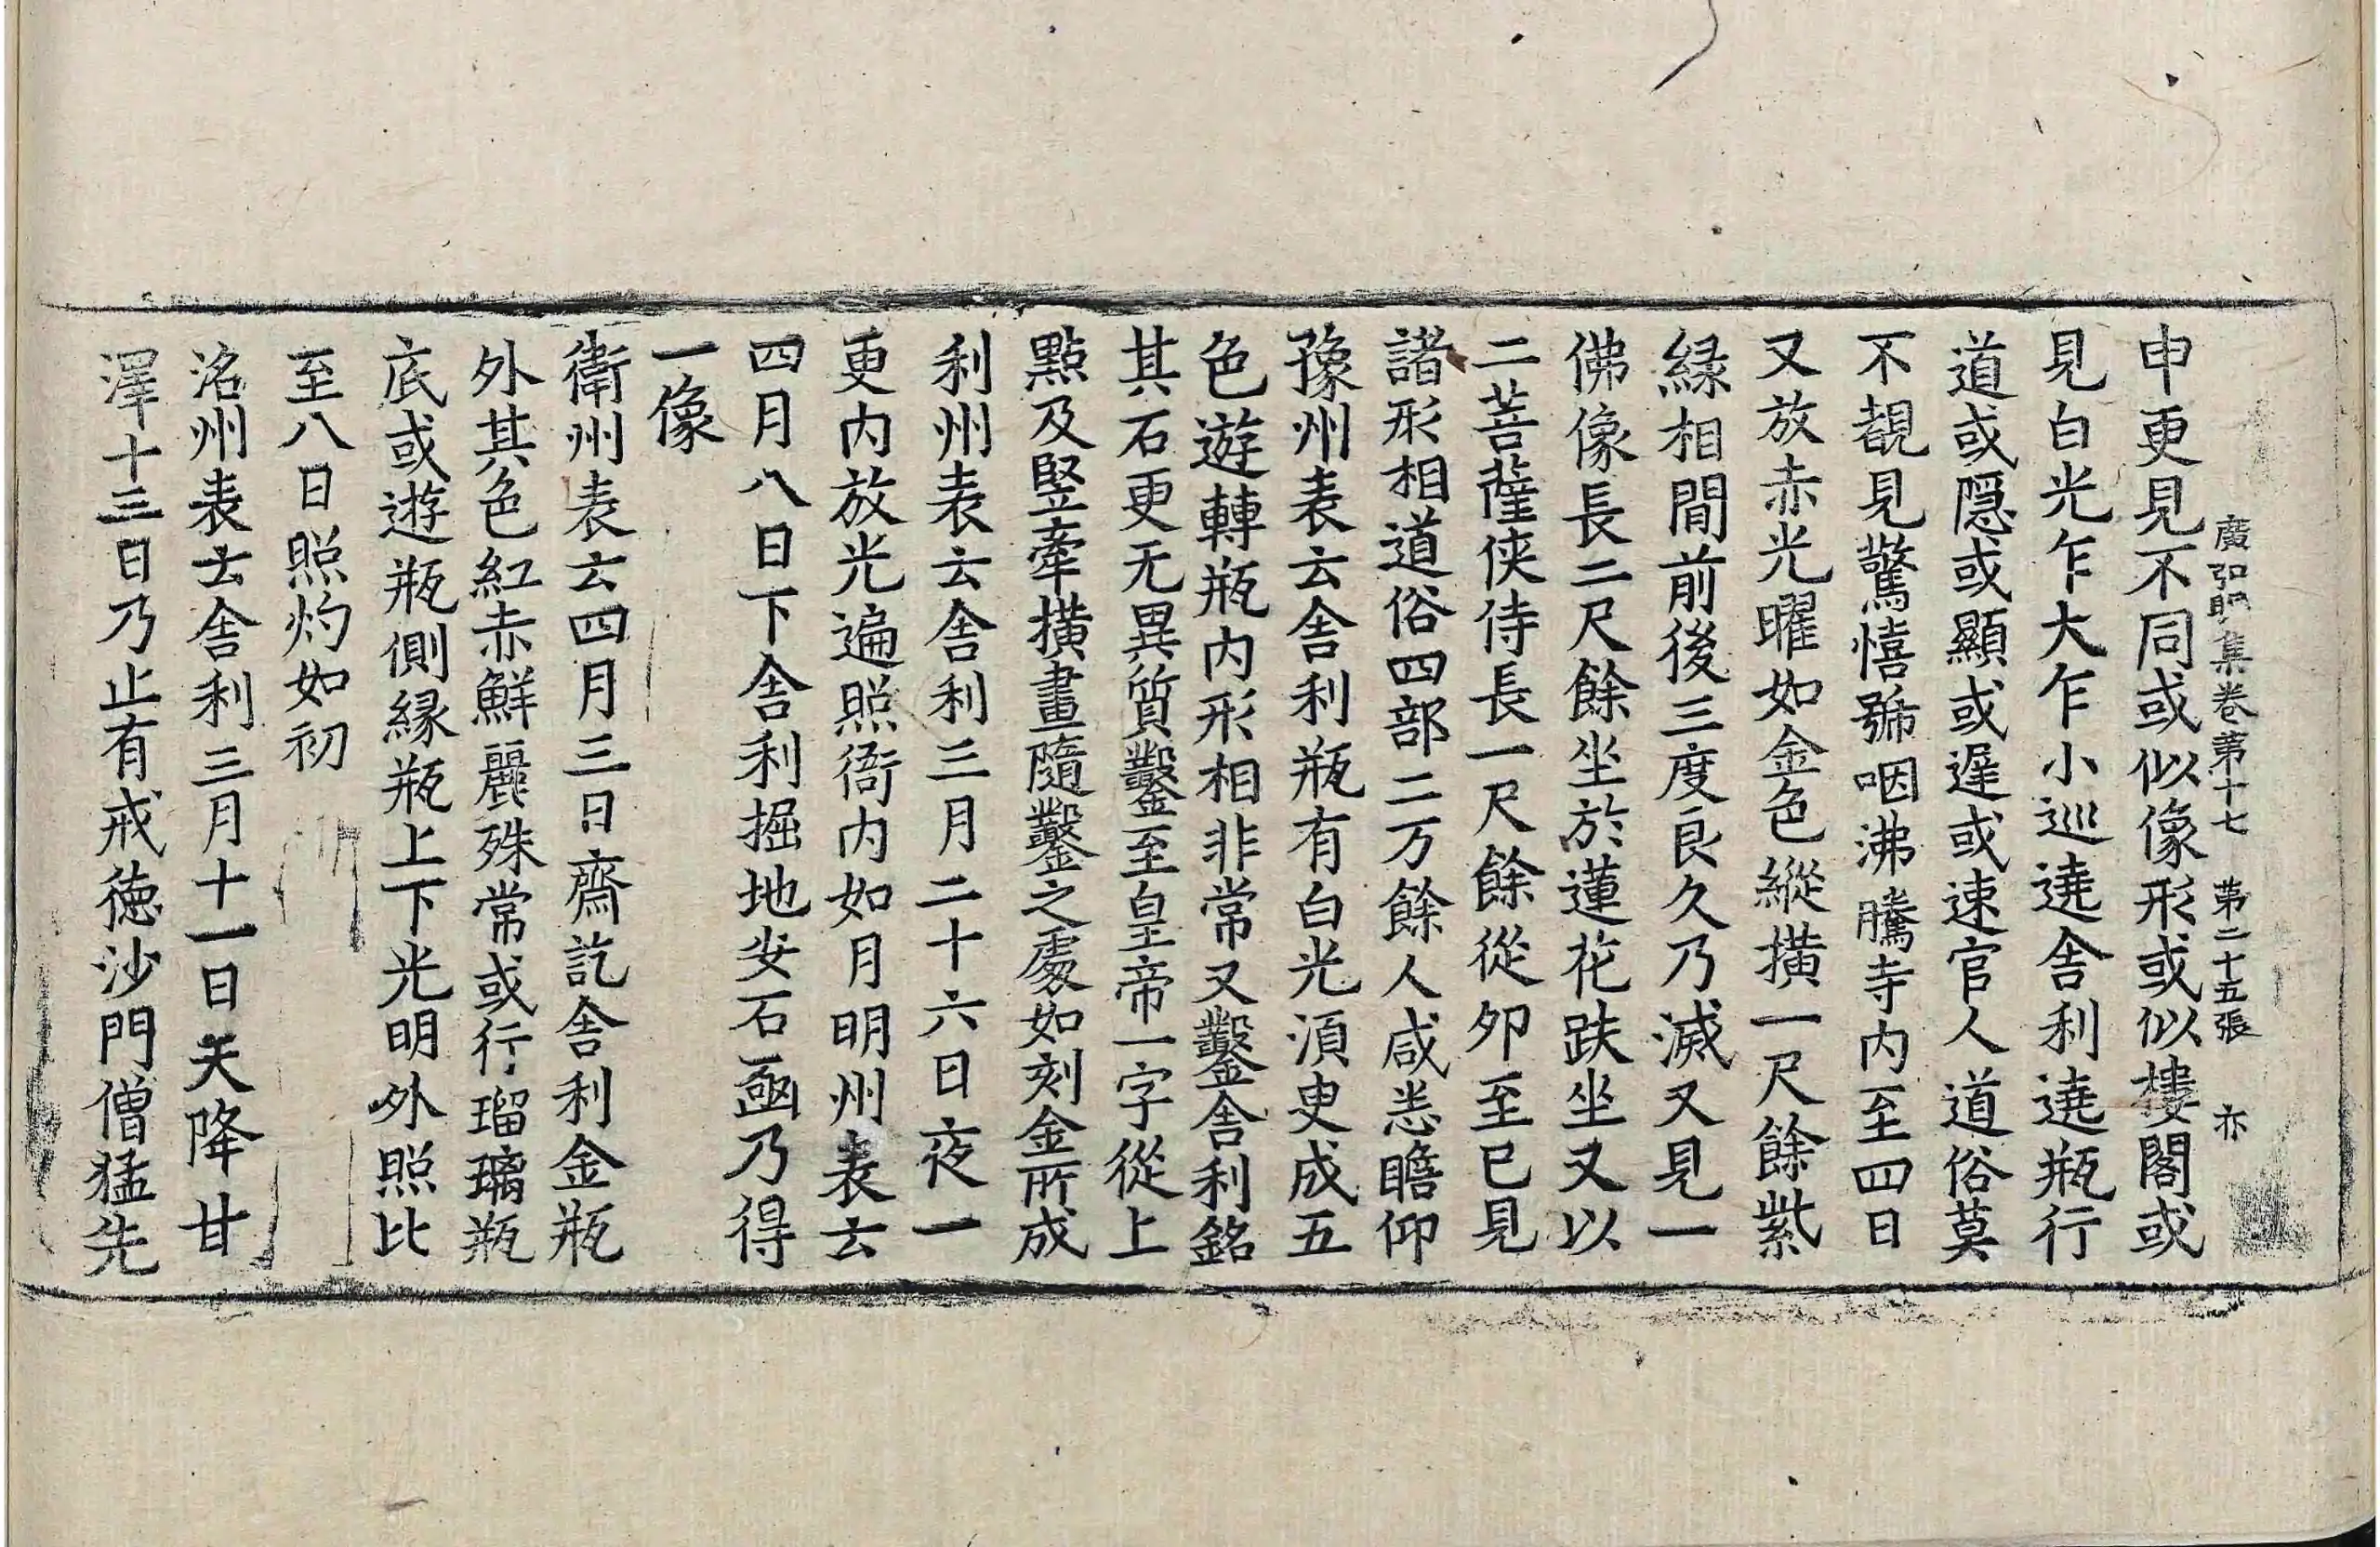 廣弘明集卷第十七 第二十五張 亦
申更見不同或似像形或似樓閣或
見白光乍大乍小巡遶舍利遶瓶行
道或隱或顯或遲或速官人道俗莫
不覩見驚憘號咽沸騰寺内至四日
又放赤光曜如金色縱横一尺餘紫
緑相間前後三度良久乃滅又見一
佛像長二尺餘坐於蓮花趺坐又以
二菩薩俠侍長一尺餘從夘至巳見
諸形相道俗四部二万餘人咸悉瞻仰
豫州表云舍利瓶有白光湏臾成五
色遊轉瓶内形相非常又鑿舍利銘
其石更无異質鑿至皇帝一字從上
點及竪牽横畫隨鑿之處如刻金所成
利州表云舍利三月二十六日夜一
更内放光遍照衙内如月明州表云
四月八日下舍利掘地安石凾乃得
一像
衛州表云四月三日齋訖舍利金瓶
外其色紅赤鮮麗殊常或行瑠璃瓶
底或遊瓶側緣瓶上下光明外照比
至八日照灼如初
洺州表云舍利三月十一日天降甘
澤十三日乃止有戒德沙門僧猛先